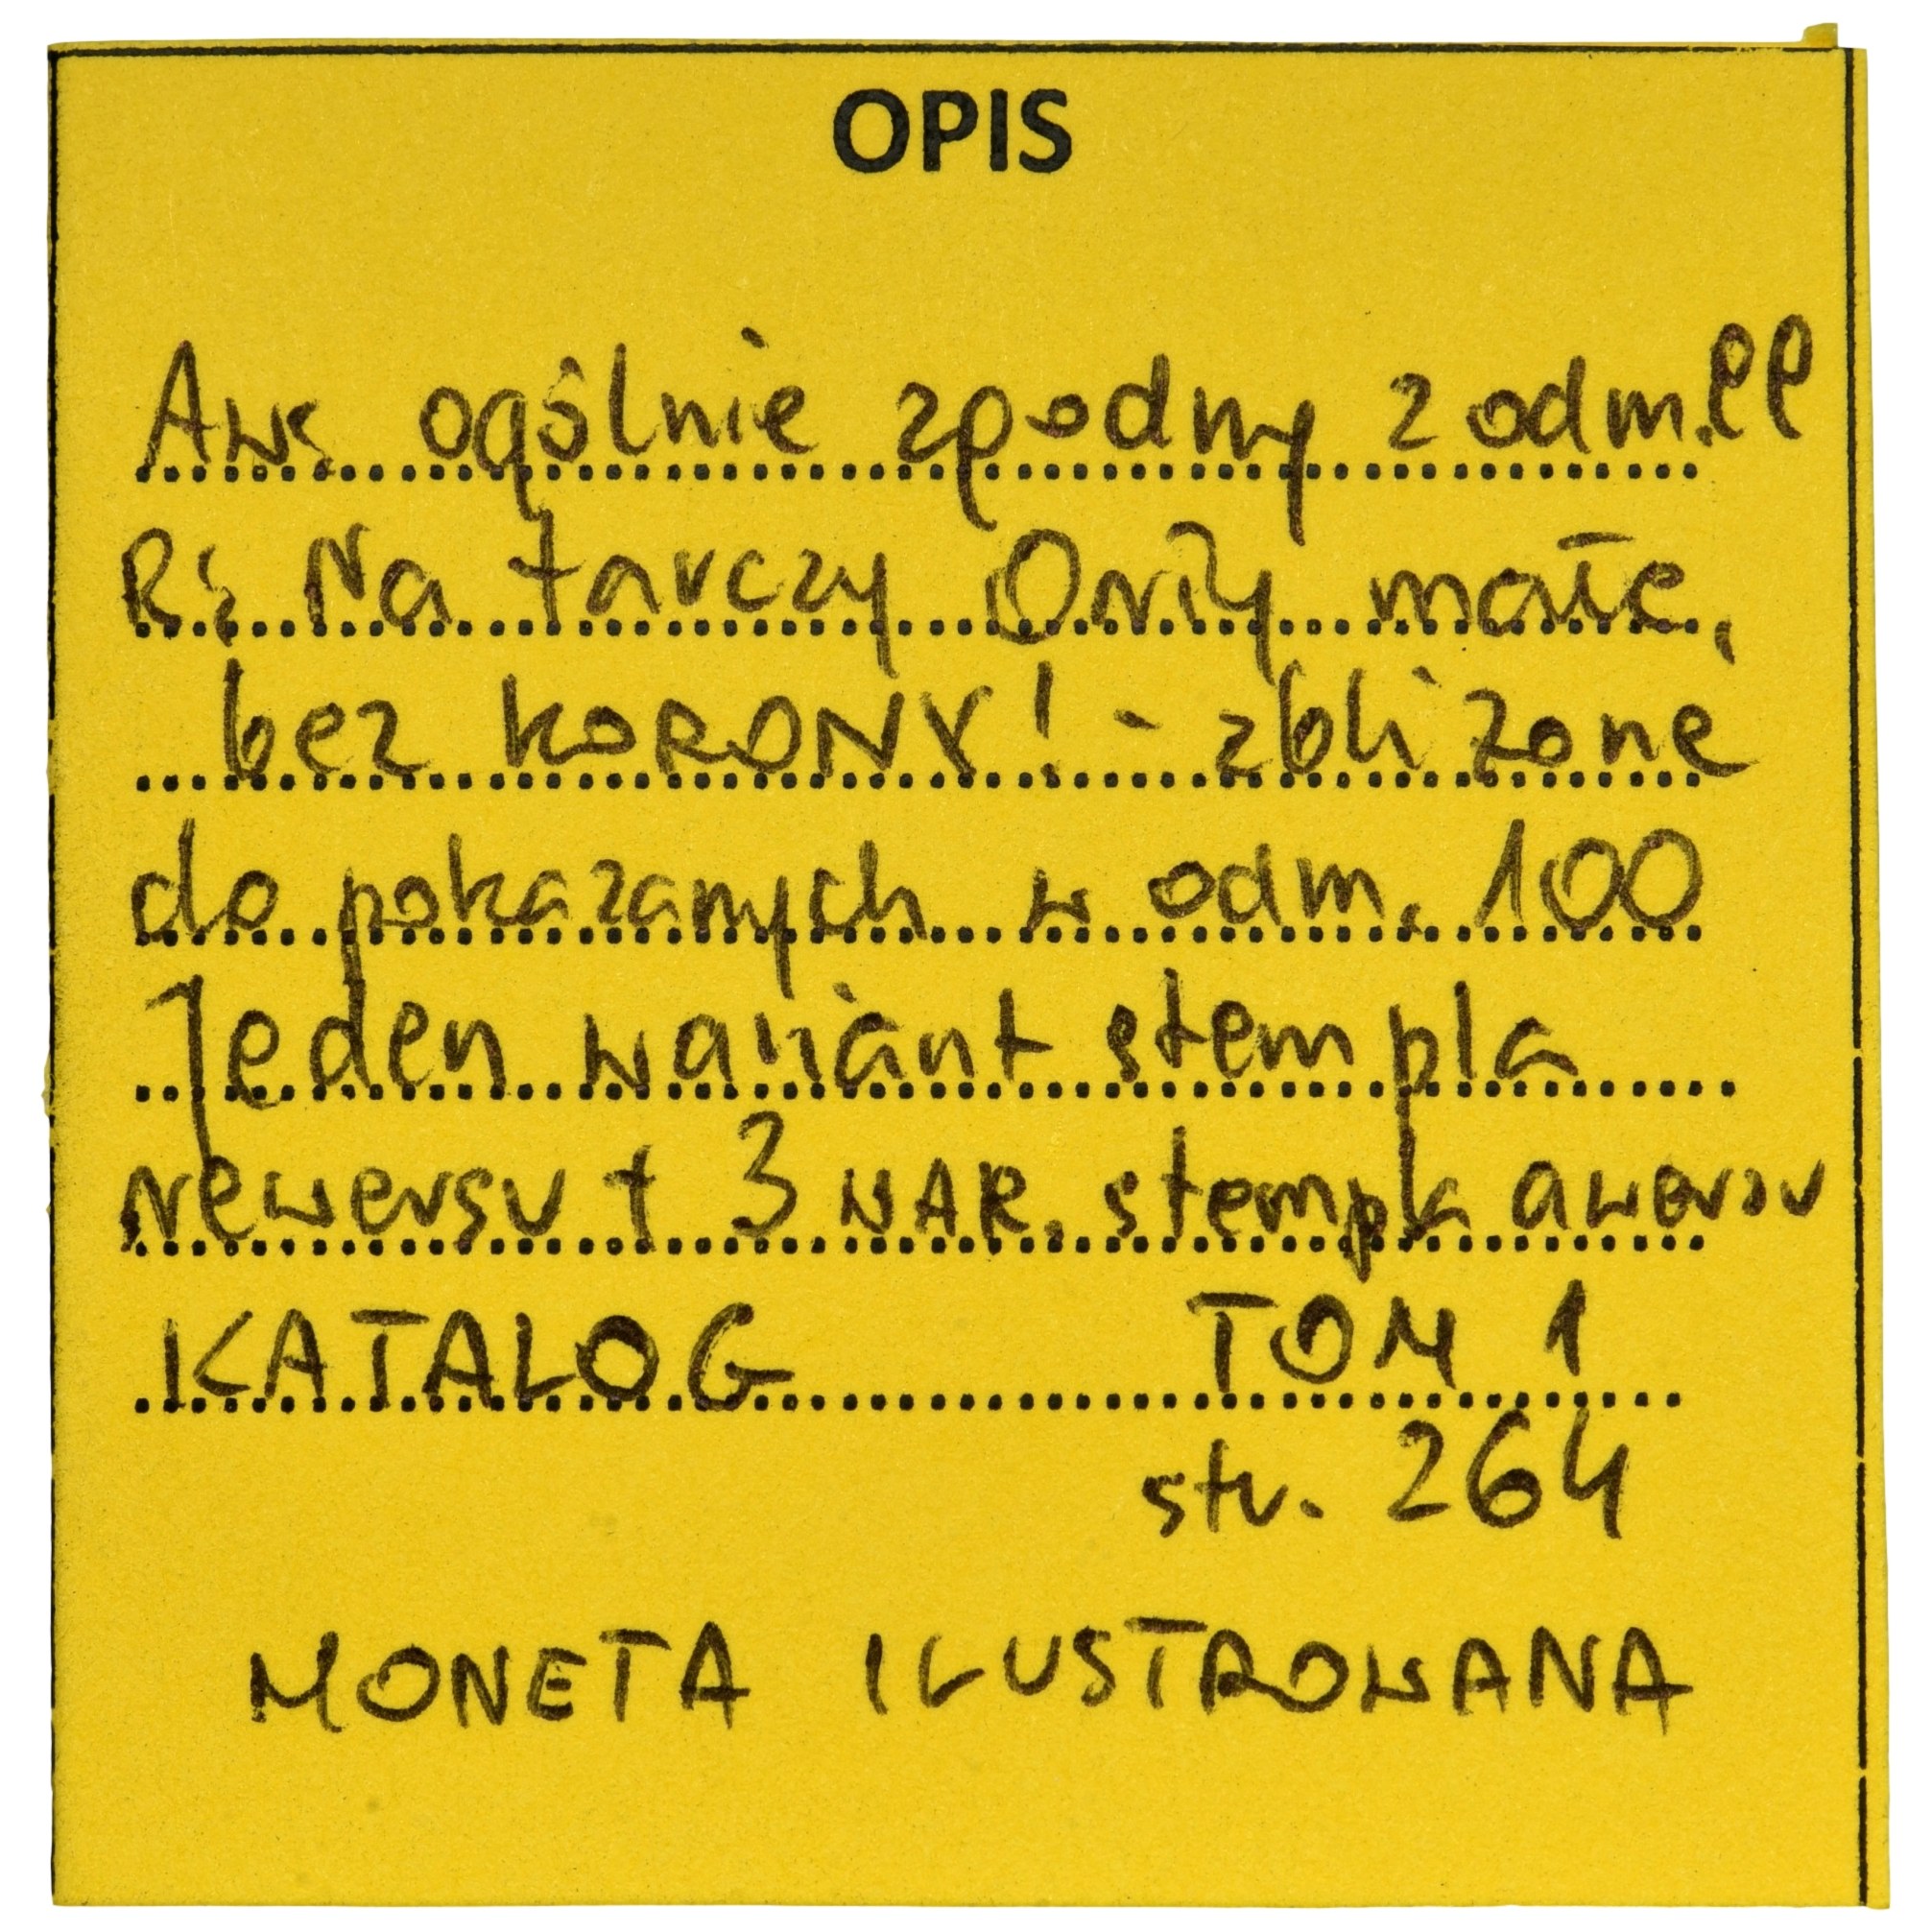 OPIS
Aw: ogólnie zgodny z odm. 99
R: Na tarczy Orły małe,
bez KORONY! - zbliżone
do pokazanych w odm. 100
Jeden wariant stempla
rewersu + 3 WAR. stempla awersu
KATALOG TOM 1
str. 264
MONETA ILUSTROWANA